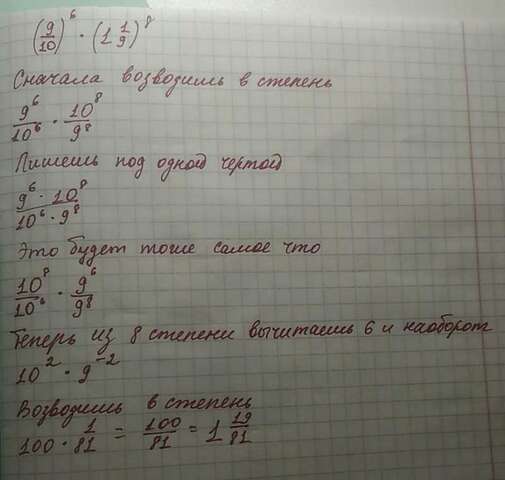 (9/10)^6 · (1 1/9)^8
Сначала возводишь в степень
9^6/10^6 · 10^8/9^8
Пишешь под одной чертой
9^6 · 10^8/10^6 · 9^8
Это будет тоже самое что
10^8/10^6 · 9^6/9^8
Теперь из 8 степени вычитаешь 6 и наоборот
10^2 · 9^-2
Возводишь в степень
100 · 1/81 = 100/81 = 1 19/81